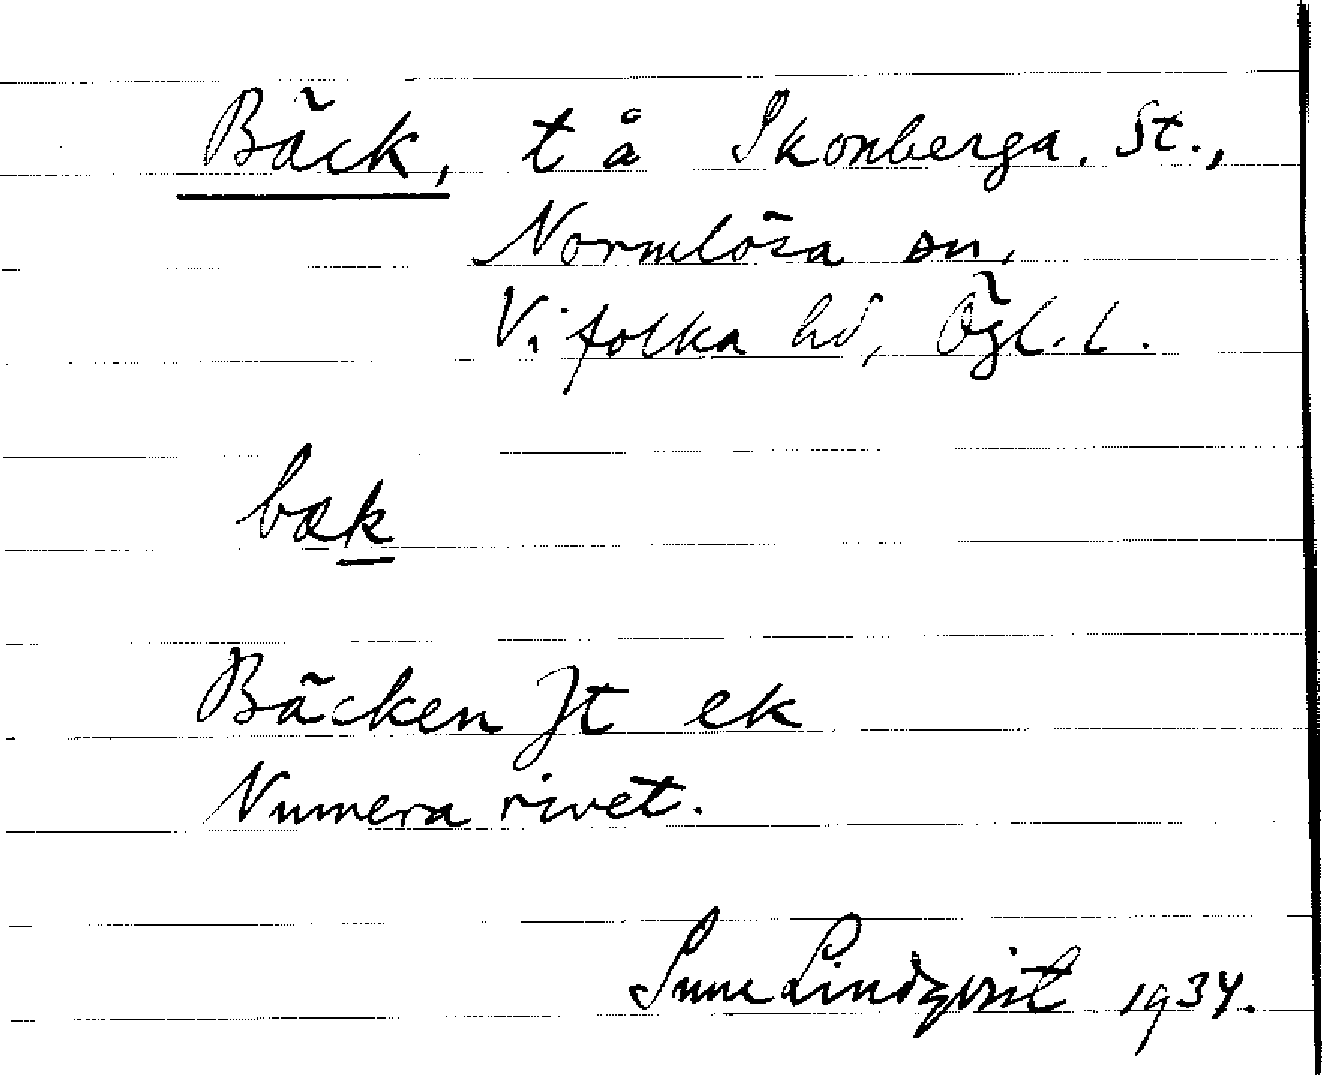 Bäck, t å Skonberga. St.,
Normlösa sn,
Vifolka hd, Ögl. l.
bæk
Bäcken Jt ek
Numera rivet.
Sune Lindqvist 1934.